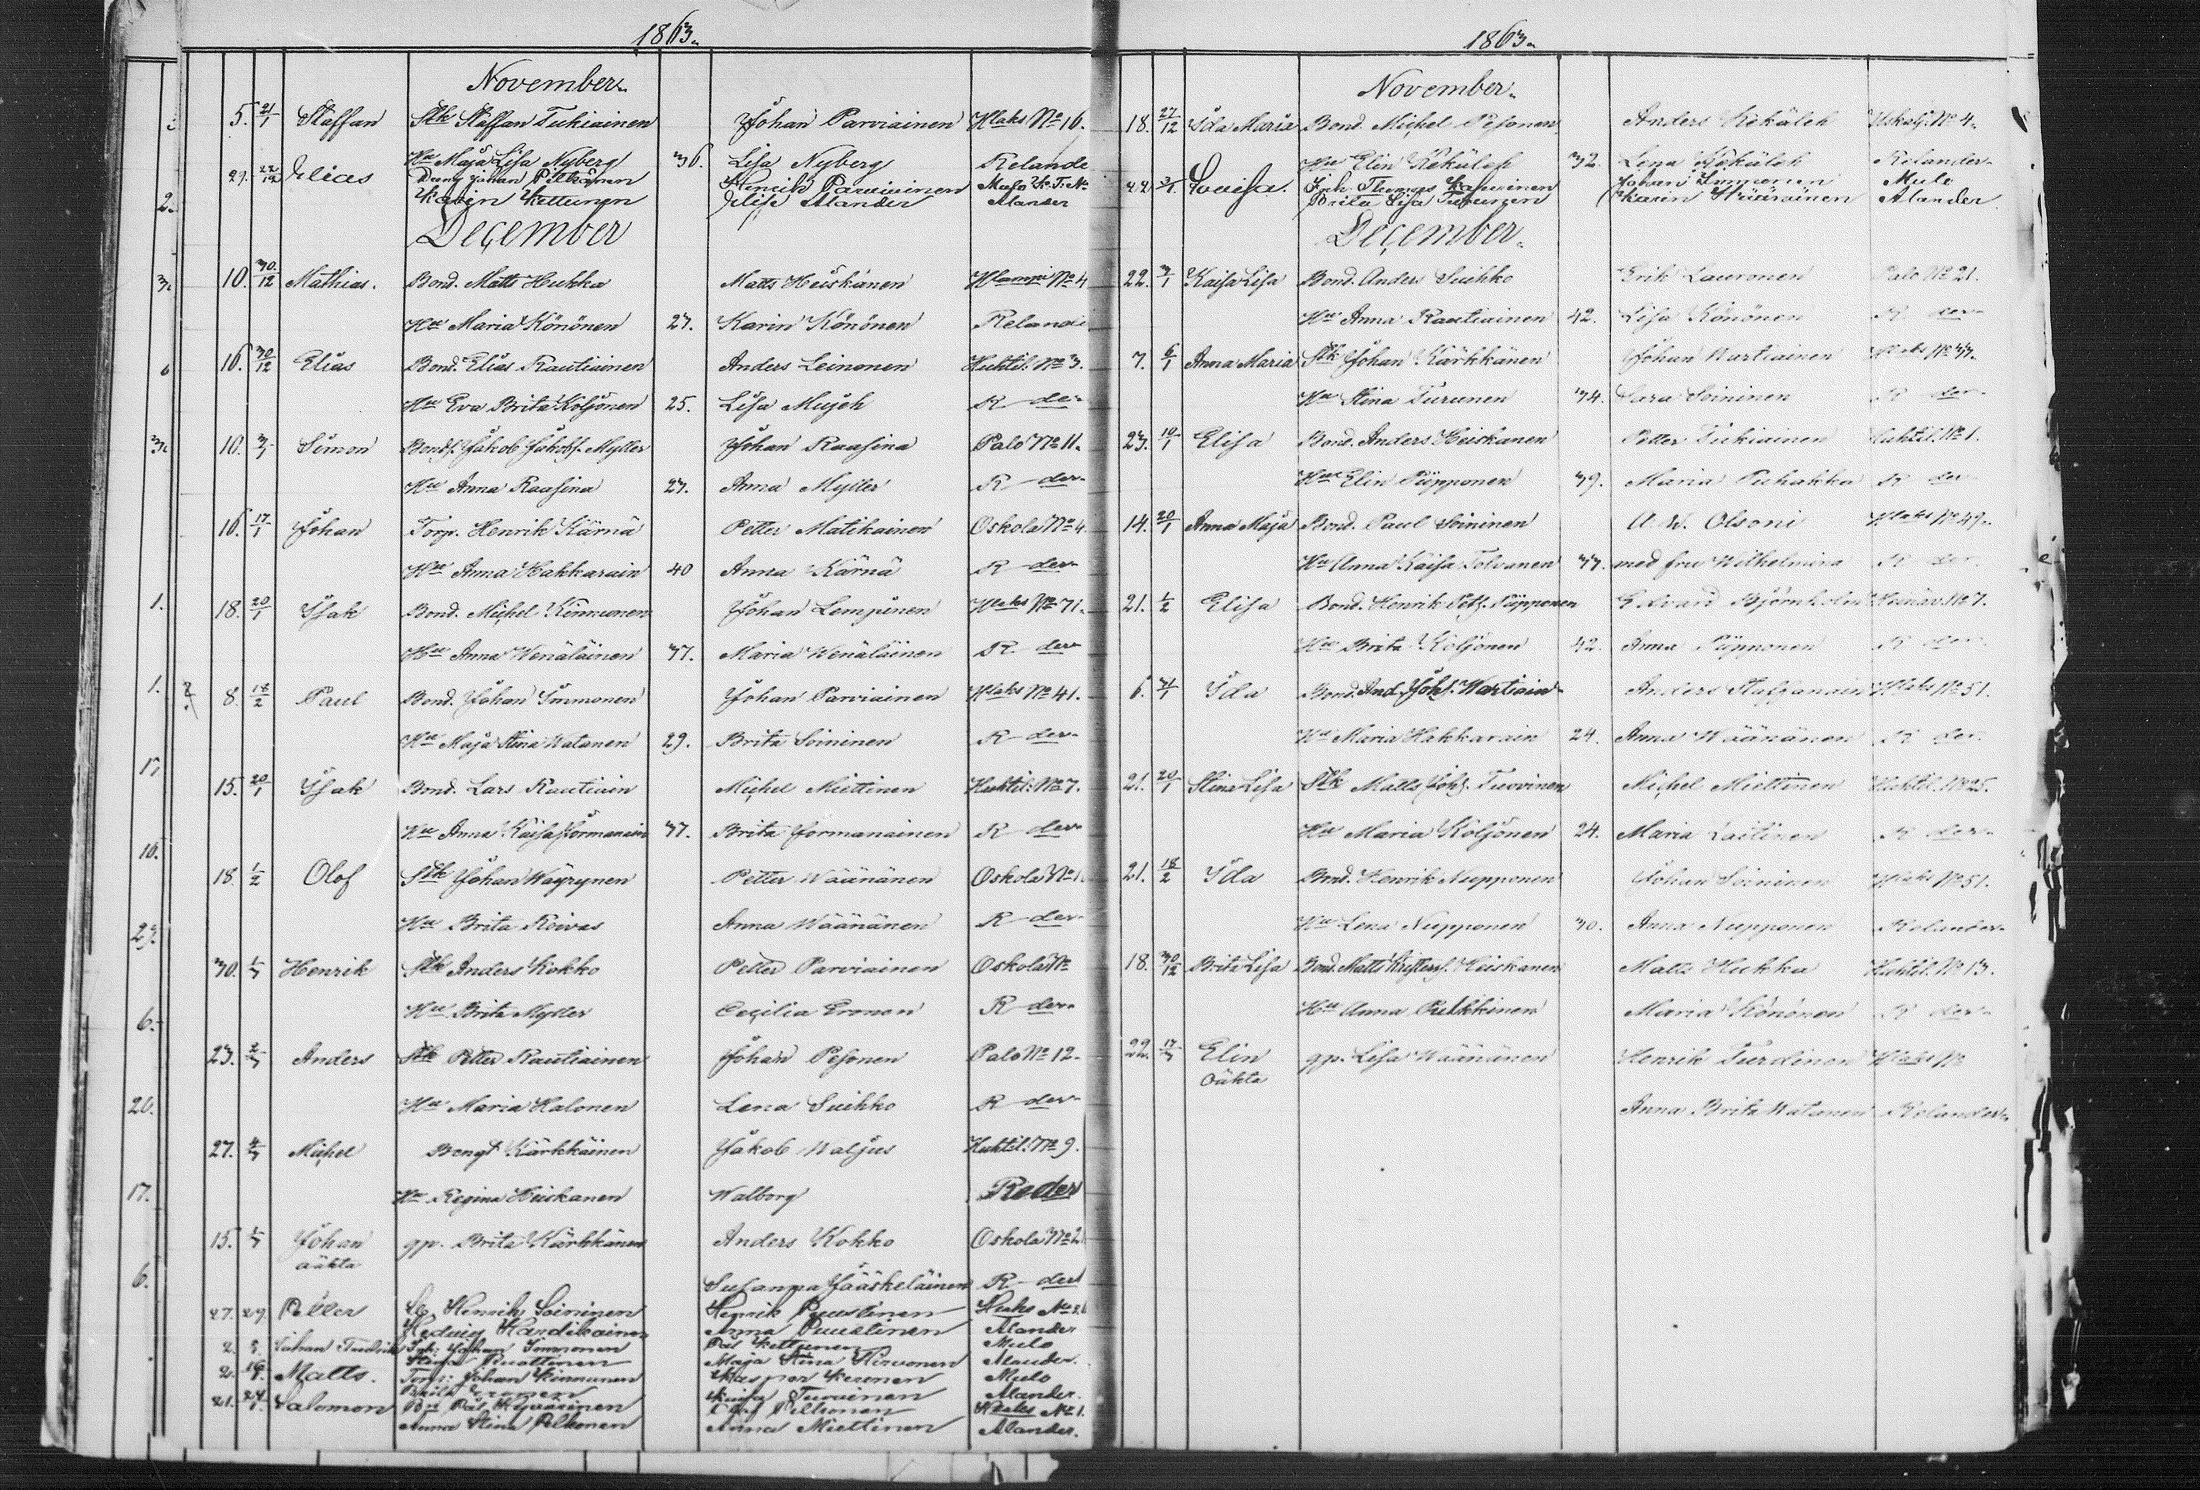 1863.
November.
5. 21/1 Staffan Stk Staffan Tukiainen Johan Parviainen Hlaks No 16.
Hu Maja Lisa Nyberg 36. Lisa Nyberg Relande
29. 22/12 Elias Dreng Johan Pitkänen Henrik Parviainen
2. Karin Kettunen Elisa Alander Alander
December
10. 30/12 Mathias. Bond. Matts Hukka Matts Heiskanen No 4
Hu Maria Könönen 27. Karin Könönen Relande
16. 30/12 Elias Bond. Elias Rautiainen Anders Leinonen Huhtil. No 3.
Hu Eva Brita Koljonen 25. Lisa R der
10. Simon Bonds. Jakob Jakobs. Myller Johan Raasina Palo No 11.
Hu Anna Raasina 27. Anna Myller R der
16. 17/1 Johan Torp. Henrik Kärnä Petter Matikainen Oskola No 4
Hu Anna Hakkarain 40 Anna Kärnä R der
1. 18. 20/1 Isak Bond. Michel Kinnunen Johan Lempinen Hlaks No 71.
Hu Anna Wenäläinen 37. Maria Wenäläinen R der
1. 8. 18/2 Paul Bond. Johan Immonen Johan Parviainen Hlaks No 41.
Hu Maja Stina Watanen 29. Brita Soininen R der
17. 15. 20/1 Isak Bond. Lars Rautiain Michel Miettinen Huhtil. No 7.
Hu Anna Kaisa Jormanain 37. Brita Jormanainen R der
18. 1/2 Olof Stk Johan Wäyrynen Petter Wäänänen Oskola No 1
Hu Brita Koivas Anna Wäänänen R der
30. 1/3 Henrik Stk Anders Kokko Petter Parviainen Oskola No
6. Hu Brita Myller Cecilia Eronen R der
23. 2/3 Anders Stk Petter Rautiainen Johan Pesonen Palo No 12.
20. Hu Maria Halonen Lena Suikko R der
27. 4/3 Michel Bengt Kärkkäinen Jakob Waljus Huhtil. No 9.
17. Hu Regina Heiskanen Walborg Reder
15. Johan gp. Brita Kärkkänen Anders Kokko Oskola No 2
oäkta
6. Susanna Jääskeläinen R der
27. 29. Peter Henrik Soininen Henrik Puustinen Hlaks No
Hedvig Anna Puustinen Alander
2. Johan Fredrik Johan Immonen Kettunen Mulo
Stina Maja Stina Hirvonen Alander.
2. Matts. Torp. Johan Kinnunen Kasper Mulo
Brita Eronen Kaisa Alander.
21. Salomon Pål Pelkonen Hlaks No 1.
Anna Stina Pelkonen Anna Miettinen Alander.
1863.
November.
18. 27/12 Ida Maria Bond. Michel Pesonen Anders Kekäleh No 4.
Hu Elin Kekäleh 32. Lena Kekäleh Relander
Lovisa. Inh. Thomas Johan Immonen Mulo
Brita Lisa Turunen Karin Alander
December.
22. 3/1 Kaisa Lisa Bond. Anders Suikko Erik Lauronen Palo No 21.
Hu Anna Rautiainen 42. Lisa Könönen R der
7. 6/1 Anna Maria Stk Johan Kärkkänen Johan Wartiainen Hlaks No 37.
Hu Stina Turunen 34. Sara Soininen R der
23. 10/1 Elisa Bond. Anders Heiskanen Petter Tukiainen Huhtil. No 1.
Hu Elin Piipponen 39. Maria Puhakka R der
14. 20/1 Anna Maja Bond. Paul Soininen A. W. Olsoni Hlaks No 49.
Hu Anna Kaisa Tolvanen 37. med fru Wilhelmina R der
21. 1/2 Elisa Bond. Henrik Pets. Piipponen Edvard Björnholm No 7.
Hu Brita Koljonen 42. Anna Piipponen R der
6. 31/1 Ida Bond. And. Johs. Wartiain Anders Staffanain Hlaks No 51.
Hu Maria Hakkarain 24. Anna Wäänänen R der
21. 20/1 Stina Lisa Stk Matts Johs. Tuovinen Michel Miettinen Huhtil. No 25.
Hu Maria Koljonen 24. Maria Laitinen R der
21. 18/2 Ida Bond. Henrik Nupponen Johan Soininen Hlaks No 51.
Hu Lena Nupponen 30. Anna Nupponen Relander
18. 30/12 Brita Lisa Bond. Matts Kristers. Heiskanen Matts Hukka Huhtil. No 13.
Hu Anna Pulkkinen Maria Könönen R der
22. 17/3 Elin gp. Lisa Wäänänen Henrik Turdinen Hlaks No
oäkta
Anna Brita Watanen Relander